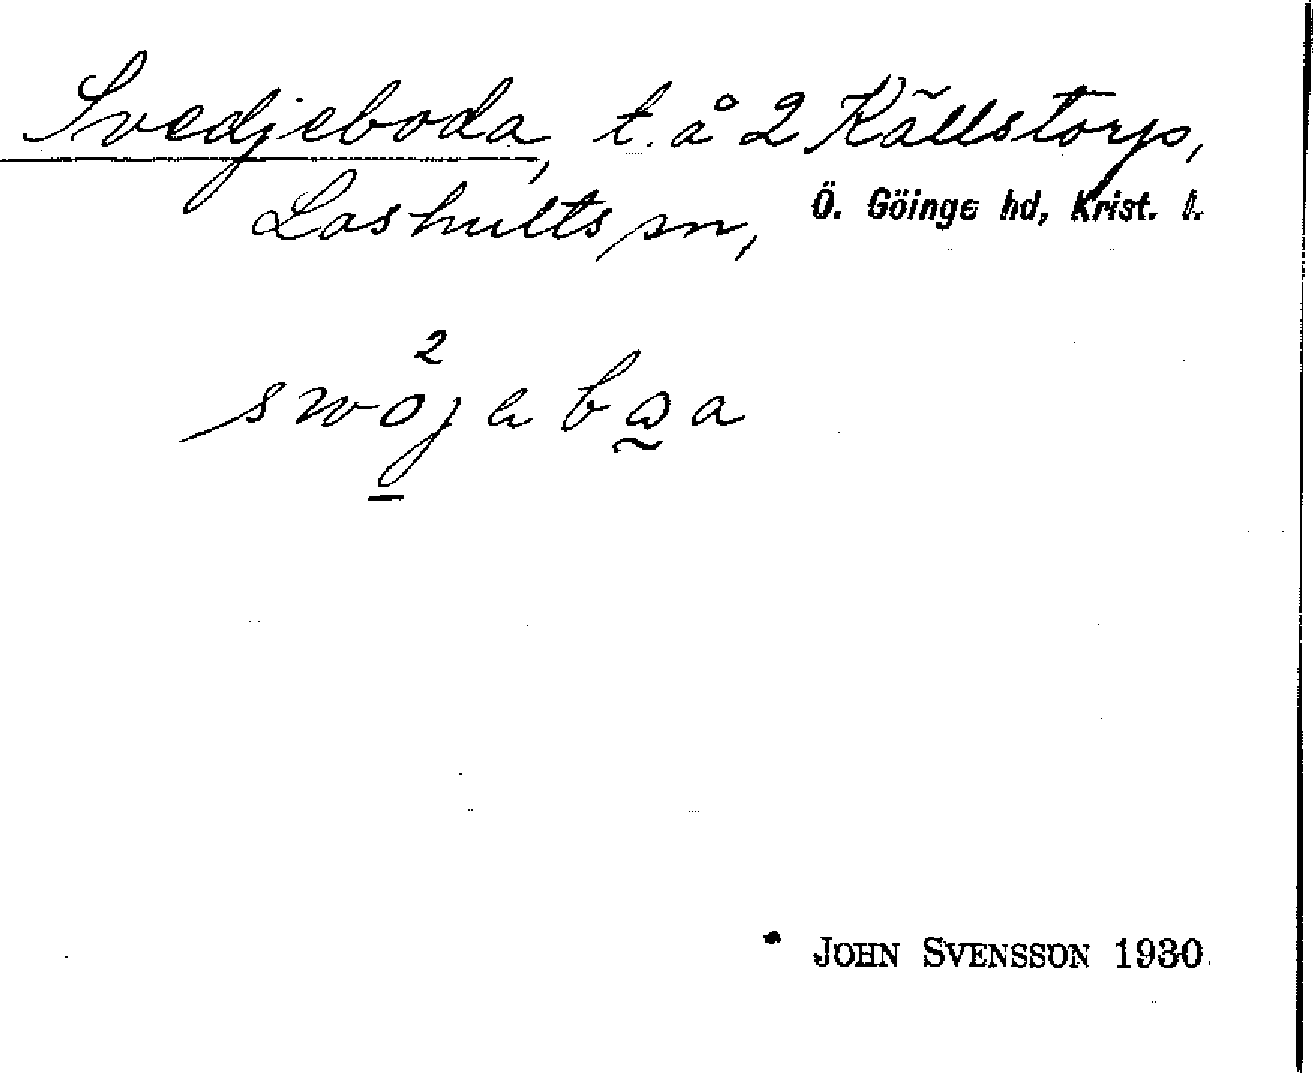 Svedjeboda, t. å 2 Källstorp,
Loshults sn, Ö. Göinge hd, Krist. l.
2
JOHN SVENSSON 1930